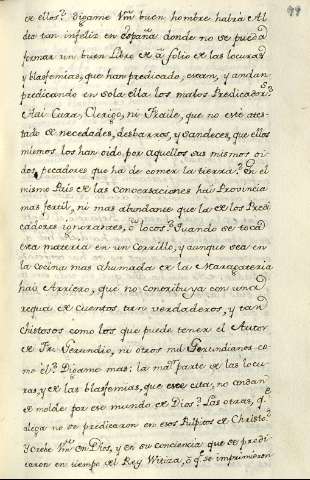 99
de ellos? Digame Vm. buen hombre habrá Al
dea tan infeliz en españa donde no se pueda
formar un buen Libro de à folio de las locuras
y blasfemias, que han predicado, estan, y andan
predicando en sola ella los malos Predicadores?
Hai Cura, Clerigo, ni Fraile, que no este ates-
tado de necedades, desbarros, y sandeces, que ellos
mismos los han oido por aquellos sus mismos oi
dos, pecadores que ha de comer la tierra? En el
mismo Pais de las Conversaciones hai Provincia
mas fertil, ni mas abundante que la de los Predi
cadores ignorantes, ò locos? Quando se toca
esta materia en un Corrillo, y aunque sea en
la cocina mas ahumada de la Maragateria
hai Arriero, que no contribuya con una
requa de Cuentos tan verdaderos, y tan
chistosos como los que puede tener el Autor
de Fri Gerundio, ni otros mil Gerundianos co
mo el? Digame mas: la mar. parte de las locu
ras, y de las blasfemias, que este cita, no andan
de molde por ese mundo de Dios? Las otras, qe.
alega no se predicaron en esos Pulpitos de Christo?
Y cree Vm. en Dios, y en su conciencia que se predi
caron en tiempo del Rey Witiza, ò qe. se imprimieron